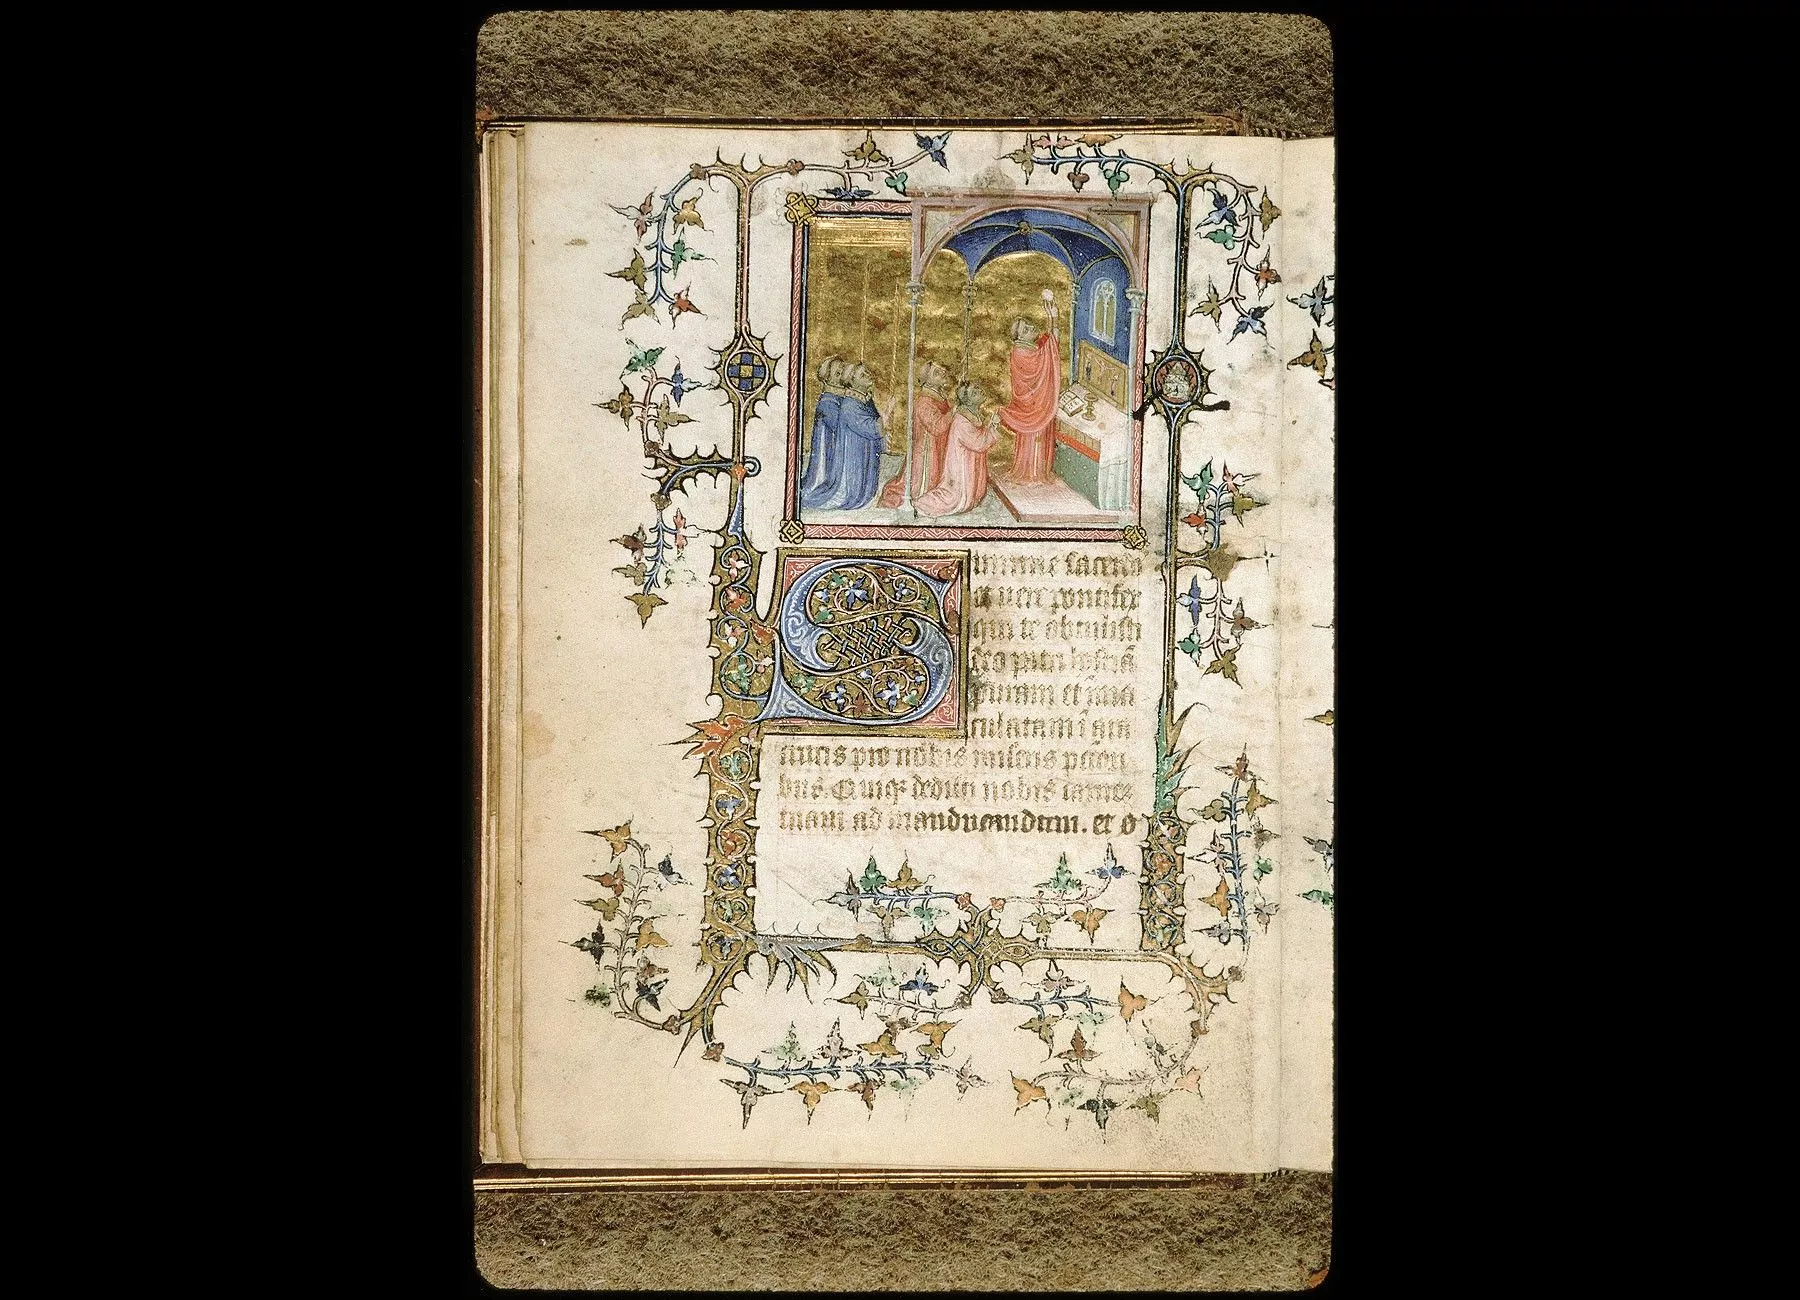 Summe sacerdos
et vere pontifex
qui te obtulisti
deo patri hostiā
puram et īma
culatam ī ara
crucis pro nobis miseris peccatori
bus. Quiqꝫ dedisti nobis carnem
tuam ad manducandum. et o